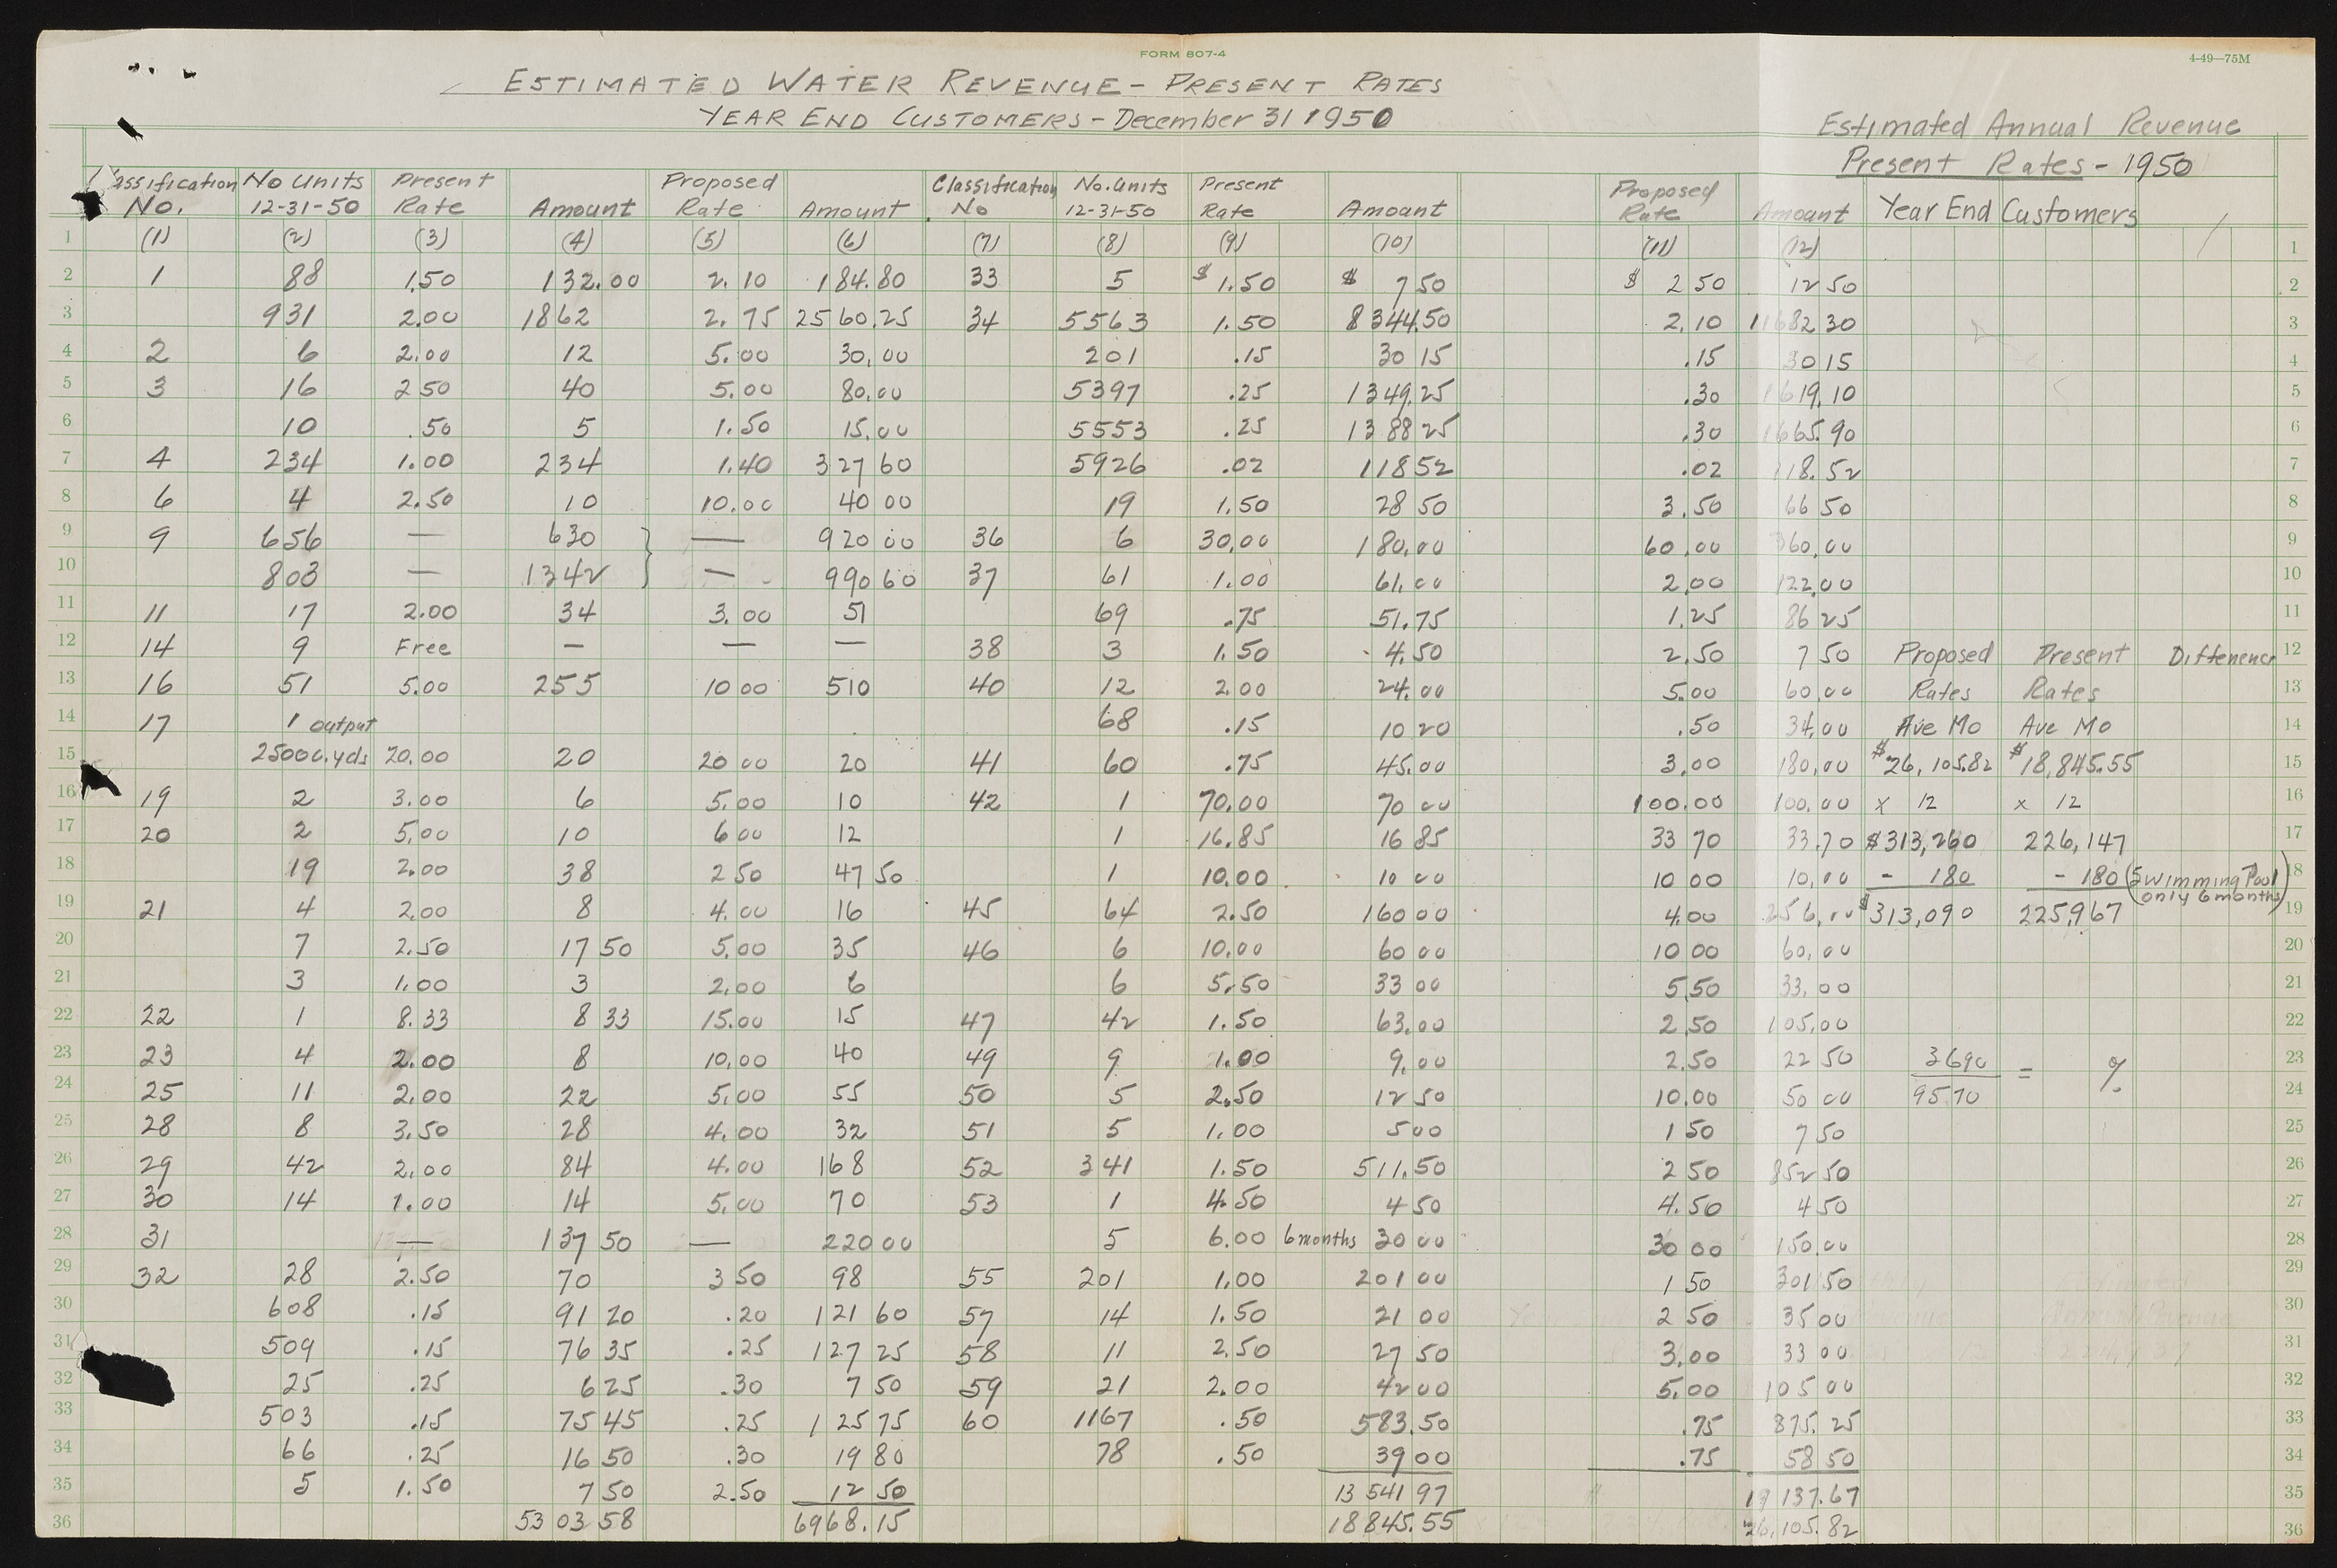 FORM 807-4
4-49—75M
ESTIMATED WATER REVENUE - PRESENT RATES
YEAR END CUSTOMERS - December 31 1950
Estimated Annual Revenue
Present Rates - 1950
Year End Customers
assification No. | No Units 12-31-50 | Present Rate | Amount | Proposed Rate | Amount | Classification No | No. Units 12-31-50 | Present Rate | Amount | Proposed Rate | Amount
1 (1) (2) (3) (4) (5) (6) (7) (8) (9) (10) (11) (12) 1
2 1 88 1.50 132.00 2.10 184.80 33 5 $1.50 $ 7 50 $ 2 50 12 50 2
3 931 2.00 1862 2.75 2560.25 34 5563 1.50 8344.50 2.10 11682 30 3
4 2 6 2.00 12 5.00 30.00 201 .15 30 15 .15 30 15 4
5 3 16 2 50 40 5.00 80.00 5397 .25 1349.25 .30 1619.10 5
6 10 .50 5 1.50 15.00 5553 .25 1388 25 .30 1665.90 6
7 4 234 1.00 234 1.40 327 60 5926 .02 118 52 .02 118.52 7
8 6 4 2.50 10 10.00 40 00 19 1.50 28 50 3.50 66 50 8
9 9 656 — 630 } — 920 00 36 6 30.00 180.00 60.00 360.00 9
10 803 — 1342 — 990 60 37 61 1.00 61.00 2.00 122.00 10
11 11 17 2.00 34 3.00 51 69 .75 51.75 1.25 86 25 11
12 14 9 Free — — — 38 3 1.50 4.50 2.50 7 50 Proposed Present Diffenence 12
13 16 51 5.00 255 10 00 510 40 12 2.00 24.00 5.00 60.00 Rates Rates 13
14 17 1 output 68 .15 10 20 .50 34.00 Ave Mo Ave Mo 14
15 25000.yds 20.00 20 20 00 20 41 60 .75 45.00 3.00 180.00 $26,105.82 $18,845.55 15
16 19 2 3.00 6 5.00 10 42 1 70.00 70 00 100.00 100.00 x 12 x 12 16
17 20 2 5.00 10 6 00 12 1 16.85 16 85 33 70 33.70 $313,260 226,147 17
18 19 2.00 38 2 50 47 50 1 10.00 10 00 10 00 10.00 - 180 - 180 (Swimming Pool 18
only 6 months)
19 21 4 2.00 8 4.00 16 45 64 2.50 160 00 4.00 256.00 $313,090 225,967 19
20 7 2.50 17 50 5.00 35 46 6 10.00 60 00 10 00 60.00 20
21 3 1.00 3 2.00 6 6 5.50 33 00 5 50 33.00 21
22 22 1 8.33 8 33 15.00 15 47 42 1.50 63.00 2.50 105.00 22
23 23 4 2.00 8 10.00 40 49 9 1.00 9.00 2.50 22 50 3690 = % 23
24 25 11 2.00 22 5.00 55 50 5 2.50 12 50 10.00 50 00 9570 24
25 28 8 3.50 28 4.00 32 51 5 1.00 5 00 1 50 7 50 25
26 29 42 2.00 84 4.00 168 52 341 1.50 511.50 2 50 852 50 26
27 30 14 1.00 14 5.00 70 53 1 4.50 4 50 4.50 4 50 27
28 31 — 137 50 — 220 00 5 6.00 6 months 30 00 30 00 150.00 28
29 32 28 2.50 70 3 50 98 55 201 1.00 201 00 1 50 301 50 29
30 608 .15 91 20 .20 121 60 57 14 1.50 21 00 2 50 35 00 30
31 509 .15 76 35 .25 127 25 58 11 2.50 27 50 3.00 33 00 31
32 25 .25 6 25 .30 7 50 59 21 2.00 42 00 5.00 105 00 32
33 503 .15 75 45 .25 125 75 60 1167 .50 583.50 .75 875.25 33
34 66 .25 16 50 .30 19 80 78 .50 39 00 .75 58 50 34
35 5 1.50 7 50 2.50 12 50 13 541 97 19 137.67 35
36 53 03 58 6968.15 18845.55 26,105.82 36